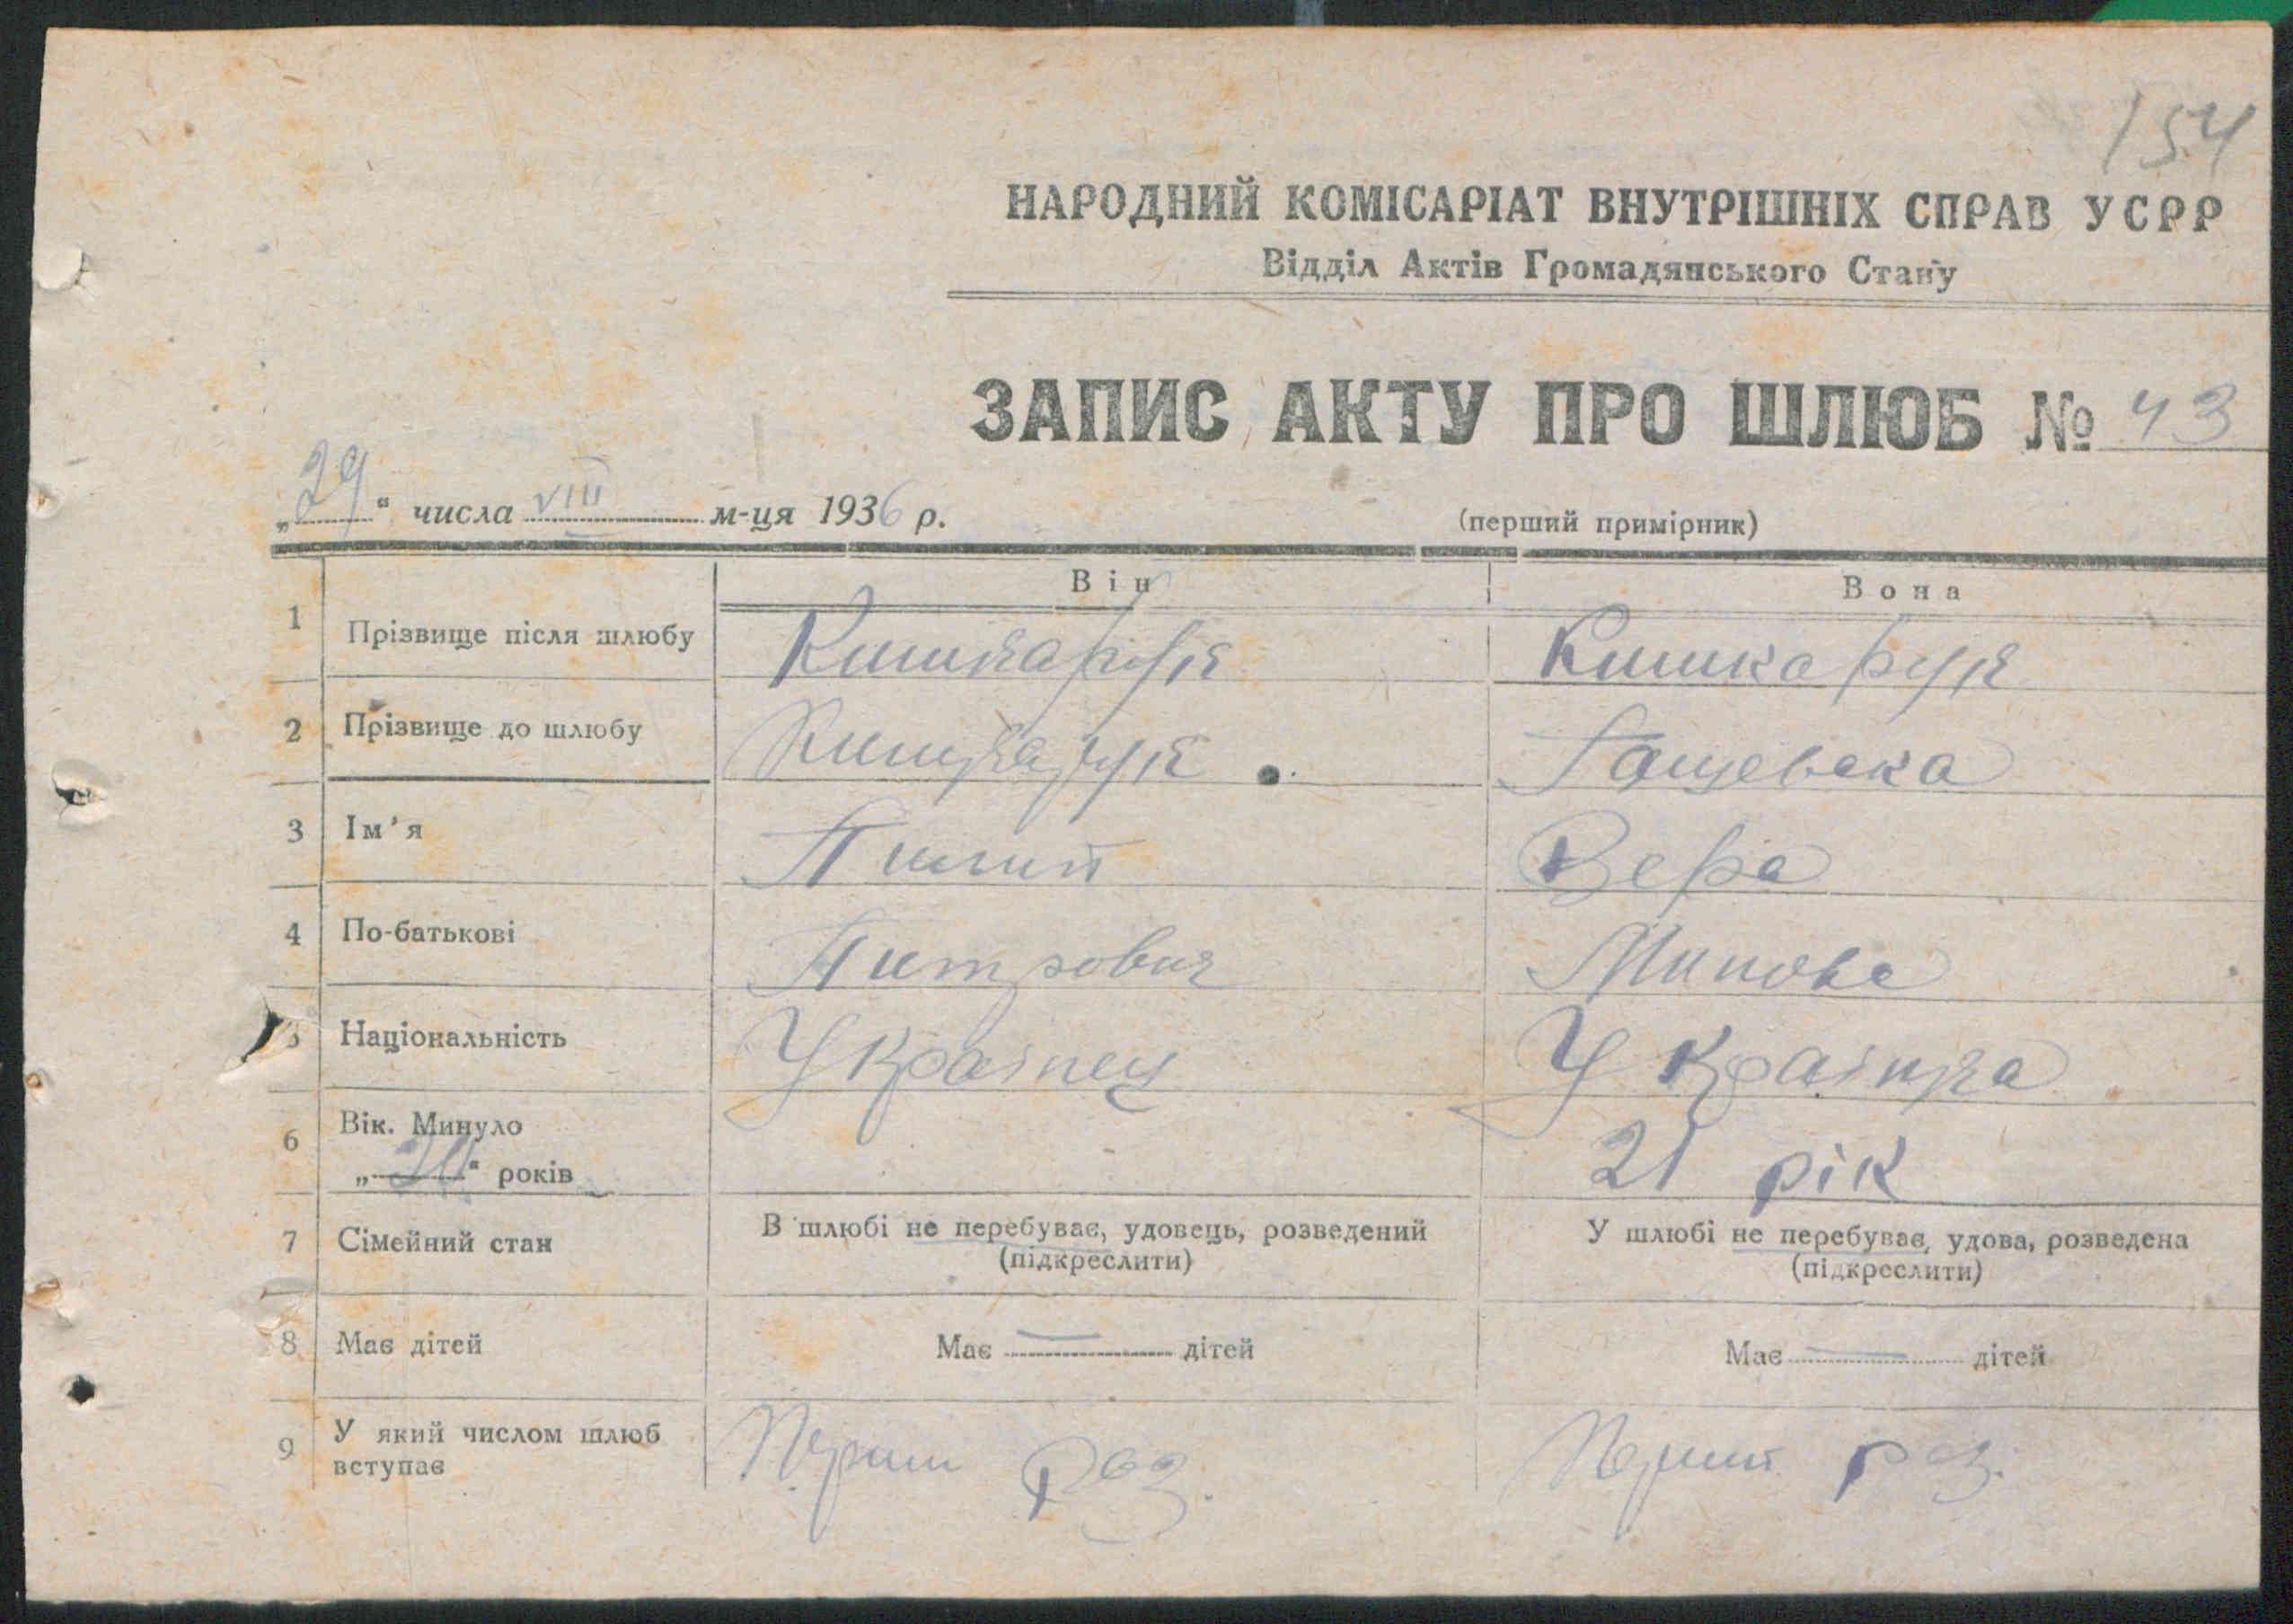 154
НАРОДНИЙ КОМІСАРІАТ ВНУТРІШНІХ СПРАВ УСРР
Відділ Актів Громадянського Стану
ЗАПИС АКТУ ПРО ШЛЮБ № 43
„29“ числа VIII м-ця 1936 р.
(перший примірник)
Він Вона
1 Прізвище після шлюбу Кишкарук Кишкарук
2 Прізвище до шлюбу Кишкарук Гащевска
3 Ім’я Пилип Вера
4 По-батькові Питрович
5 Національність Українец Українка
6 Вік. Минуло
„ “ років 21 рік
7 Сімейний стан В шлюбі не перебуває, удовець, розведений У шлюбі не перебуває, удова, розведена
(підкреслити) (підкреслити)
8 Має дітей Має — дітей Має — дітей
9 У який числом шлюб
вступає Перши раз. Перший раз.